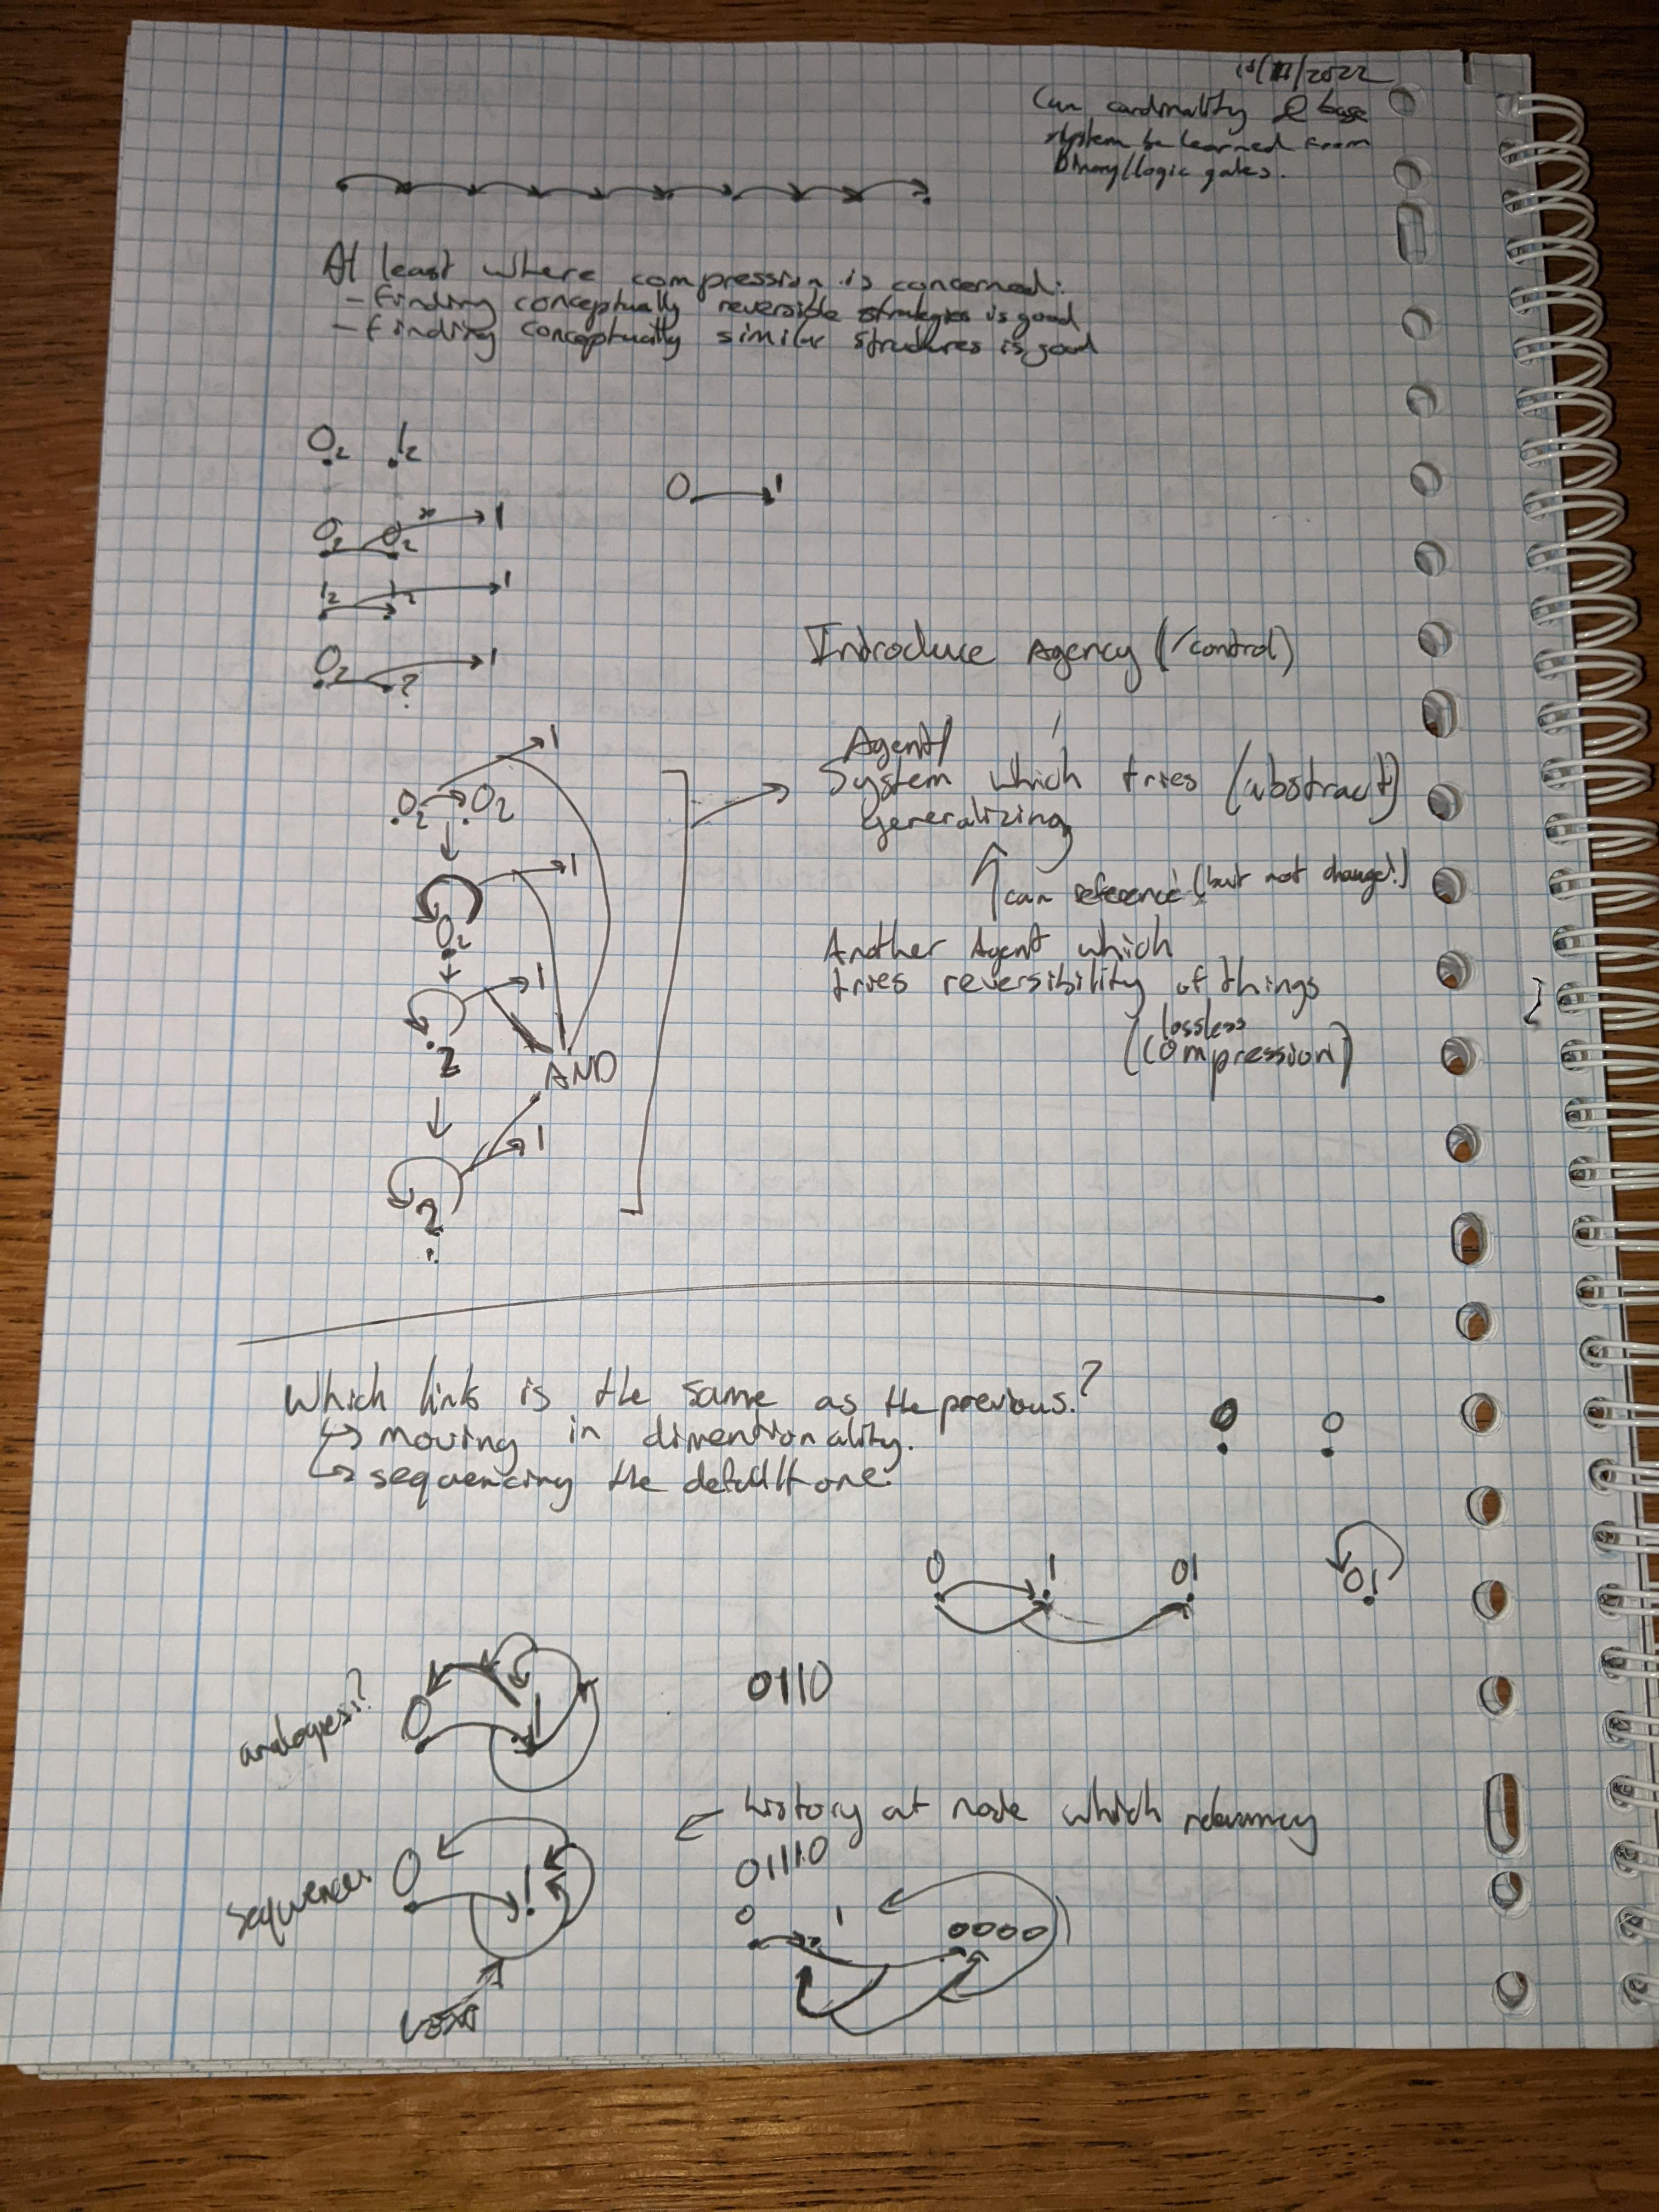 /2022
Can cardinality & base
system be learned from
binary/logic gates.
At least where compression is concerned:
- finding conceptually reversible strategies is good
- finding conceptually similar structures is good
0₂ 1₂
0 1
0₂ 0₂ 1
1₂ 1₂ 1
0₂ ? 1
Introduce Agency (/control)
1
Agent/
0₂ 0₂
System which tries (abstract)
generalizing
1
can reference (but not change!)
0₂
Another Agent which
1
tries reversibility of things
lossless
(compression)
?
AND
1
?
Which link is the same as the previous?
↳ moving in dimentionality.
↳ sequencing the default one.
0 0
0 1 01 01
analogies?
0 1
0110
history at node which
01110
sequences
0 1
0 1 0000